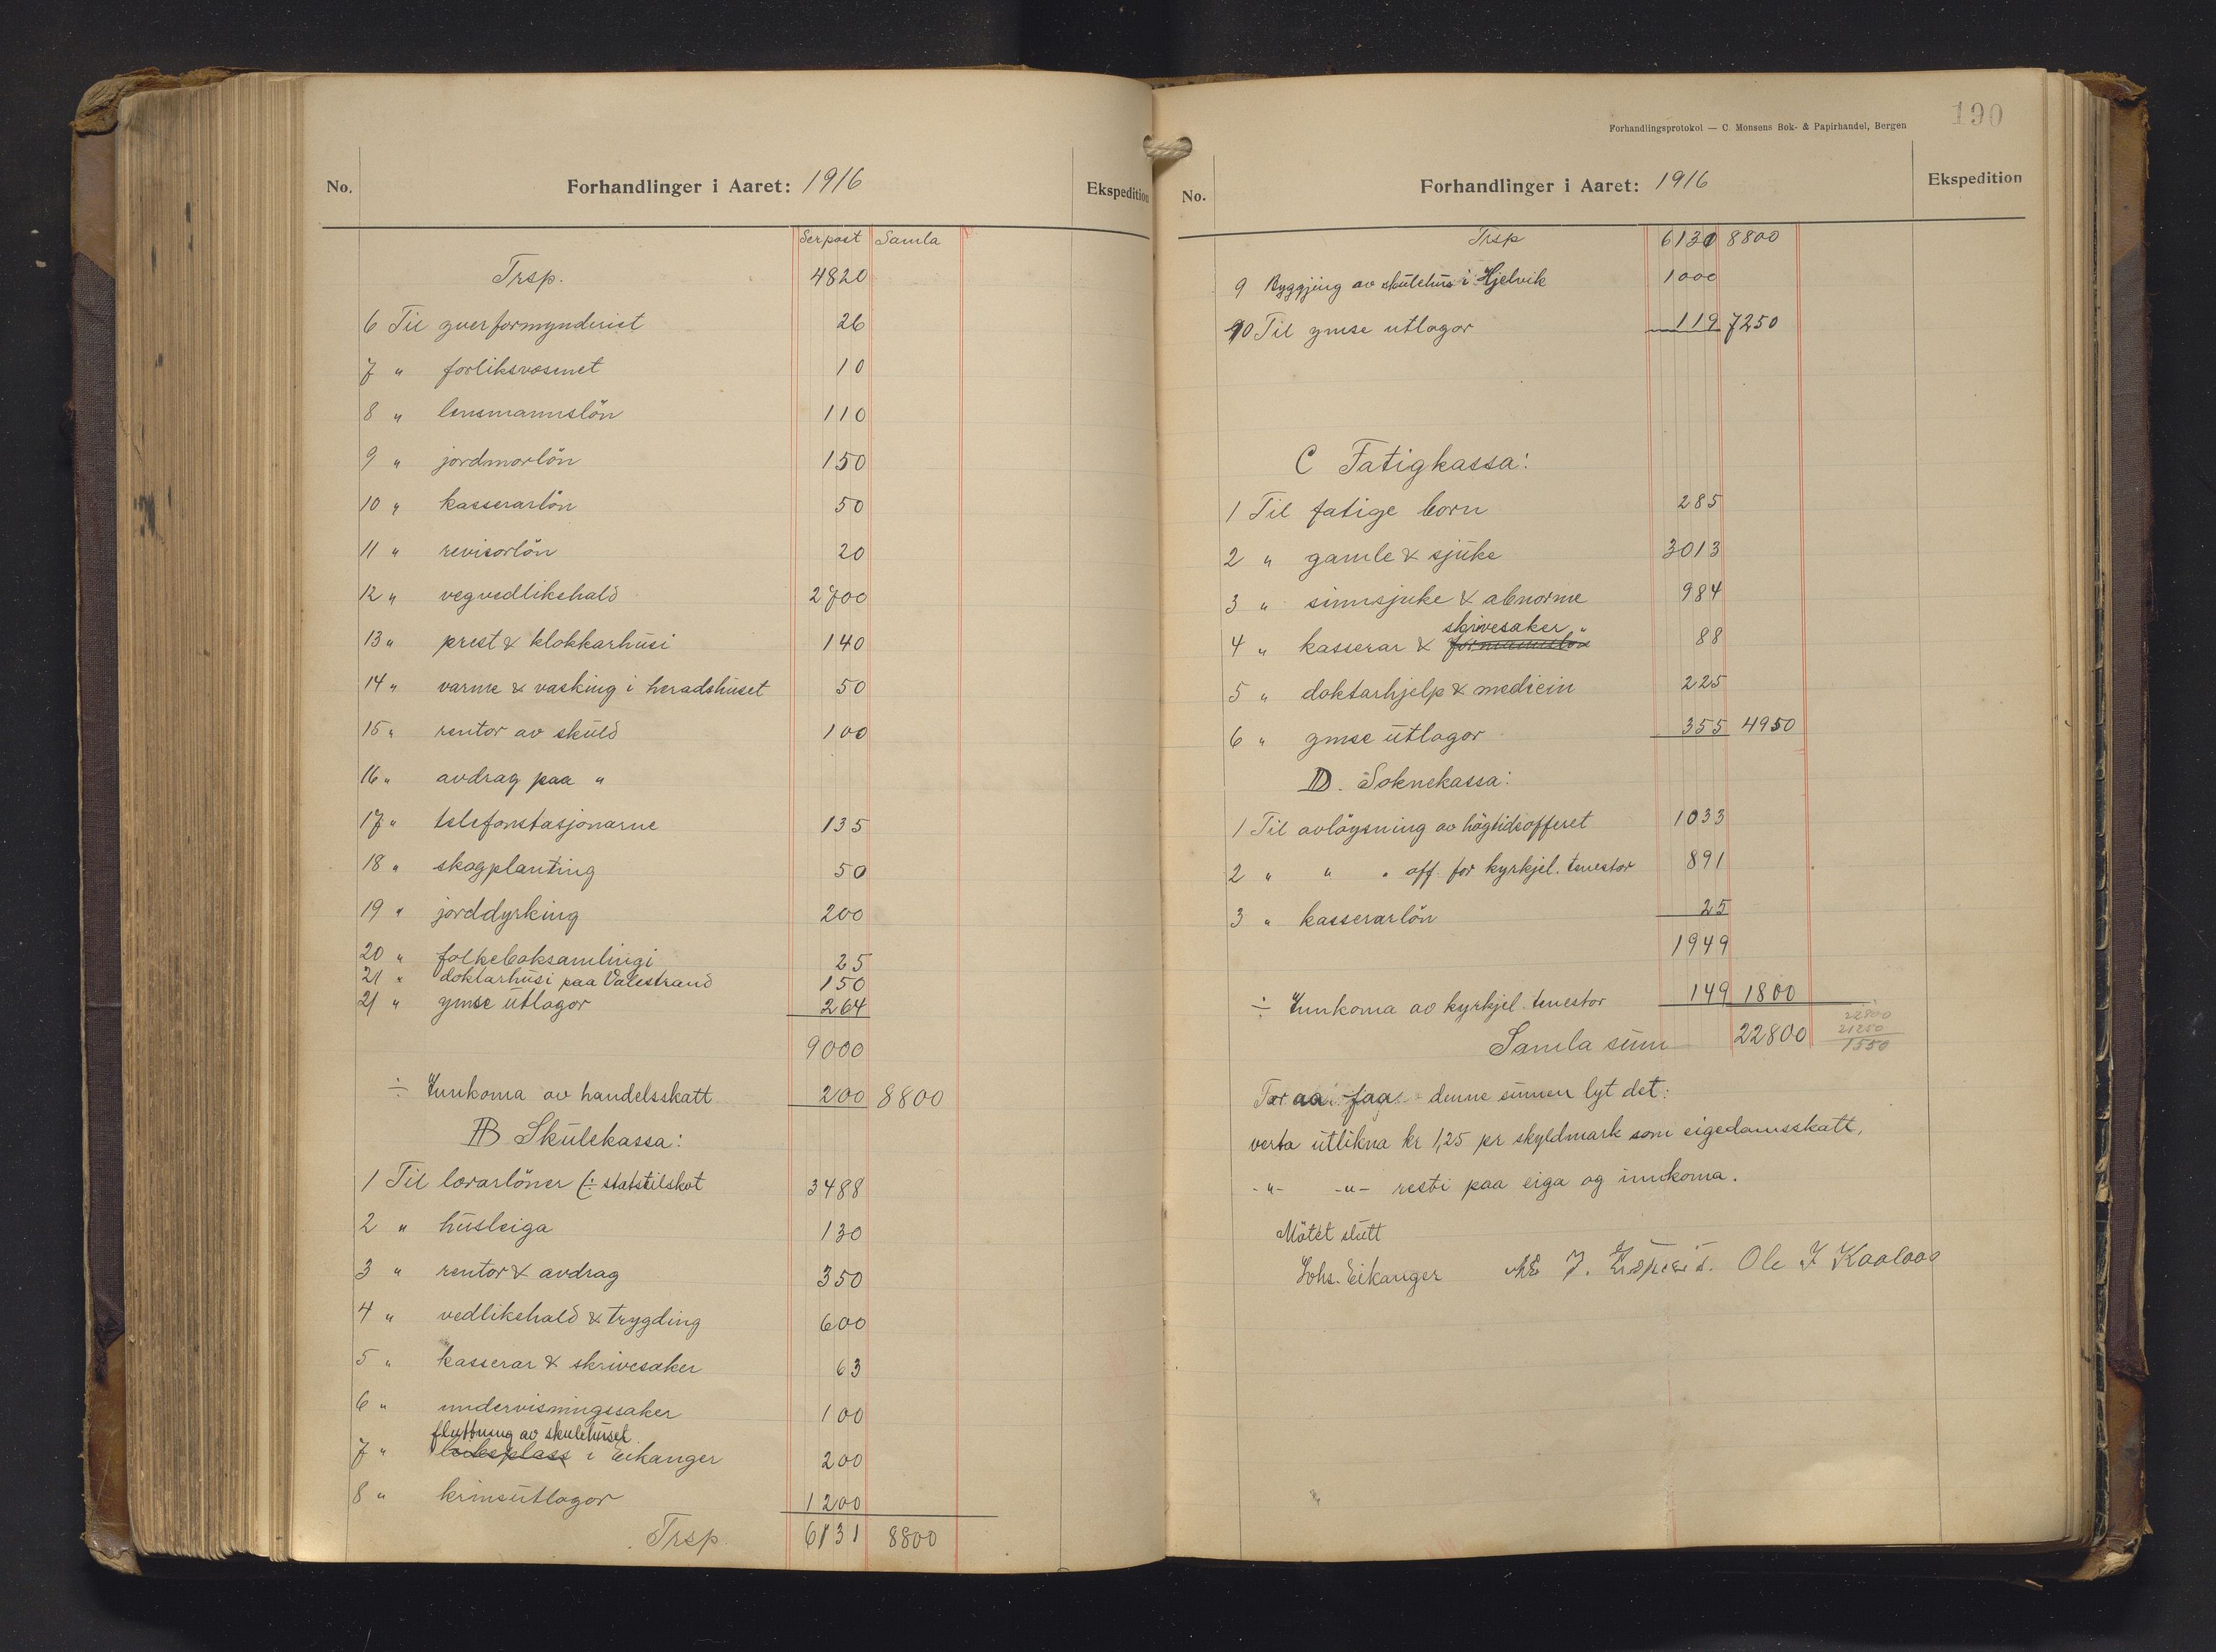 No. Forhandlinger i Aaret: 1916 Ekspedition
Serpost Samla
Trsp. 4820
6 Til yverformynderiet 26
7 " forliksvæsenet 10
8 " lensmannslön 110
9 " jordmorlön 150
10 " kasserarlön 50
11 " revisorlön 20
12 " vegvedlikehald 2700
13 " prest & klokkarhusi 140
14 " varme & vasking i heradshuset 50
15 " rentor av skuld 100
16 " avdrag paa "
17 " telefonstasjonarne 135
18 " skogplanting 50
19 " jorddyrking 200
20 " folkeboksamlingi 25
21 " doktarhusi paa Valestrand 150
21 " ymse utlogor 264
9000
÷ Innkoma av handelsskatt 200 8800
B Skulekassa:
1 Til lærarlöner (÷ statstilskot 3488
2 " husleiga 130
3 " rentor & avdrag 350
4 " vedlikehald & trygding 600
5 " kasserar & skrivesaker 63
6 " undervisningssaker 100
flutning av skulehuset
7 " i Eikanger 200
8 " krinsutlogor 1200
Trsp 6131 8800
190
Forhandlingsprotokol — C. Monsens Bok- & Papirhandel, Bergen
No. Forhandlinger i Aaret: 1916 Ekspedition
Trsp 6131 8800
9 Byggjing av skulehus i Hjelvik 1000
10 Til ymse utlogor 119 7250
C Fatigkassa:
1 Til fatige born 285
2 " gamle & sjuke 3013
3 " sinnsjuke & abnorme 984
skrivesaker "
4 " kasserar & formannslön 88
5 " doktarhjelp & medicin 225
6 " ymse utlogor 355 4950
D. Soknekassa:
1 Til avlöysning av högtidsofferet 1033
2 " " " off. for kyrkjel. tenestor 891
3 " kasserarlön 25
1949
÷ Innkoma av kyrkjel. tenestor 149 1800
Samla sum 22800
22800
21250
1550
For aa faa denne sumen lyt det:
verta utlikna kr 1,25 pr skyldmark som eigedomsskatt,
-"- -"- resti paa eiga og innkoma.
Mötet slutt
Johs. Eikanger J. Ole J Kaalaas